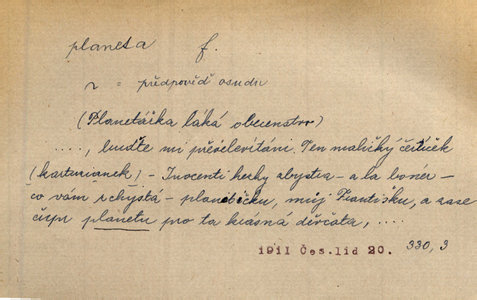 planeta f.
předpověď osudu
(Planetářka láká obecenstvo)
...., buďte mi přeselevitám. Ten maličký čertíček
(kartusianek) - Inocenti herky abystra - a la bonér -
co vám schystá - planetičku, můj Františku, a zase
čapr planetu pro ta krásná děvčata, ....
1911 Čes. lid 20. 330, 3